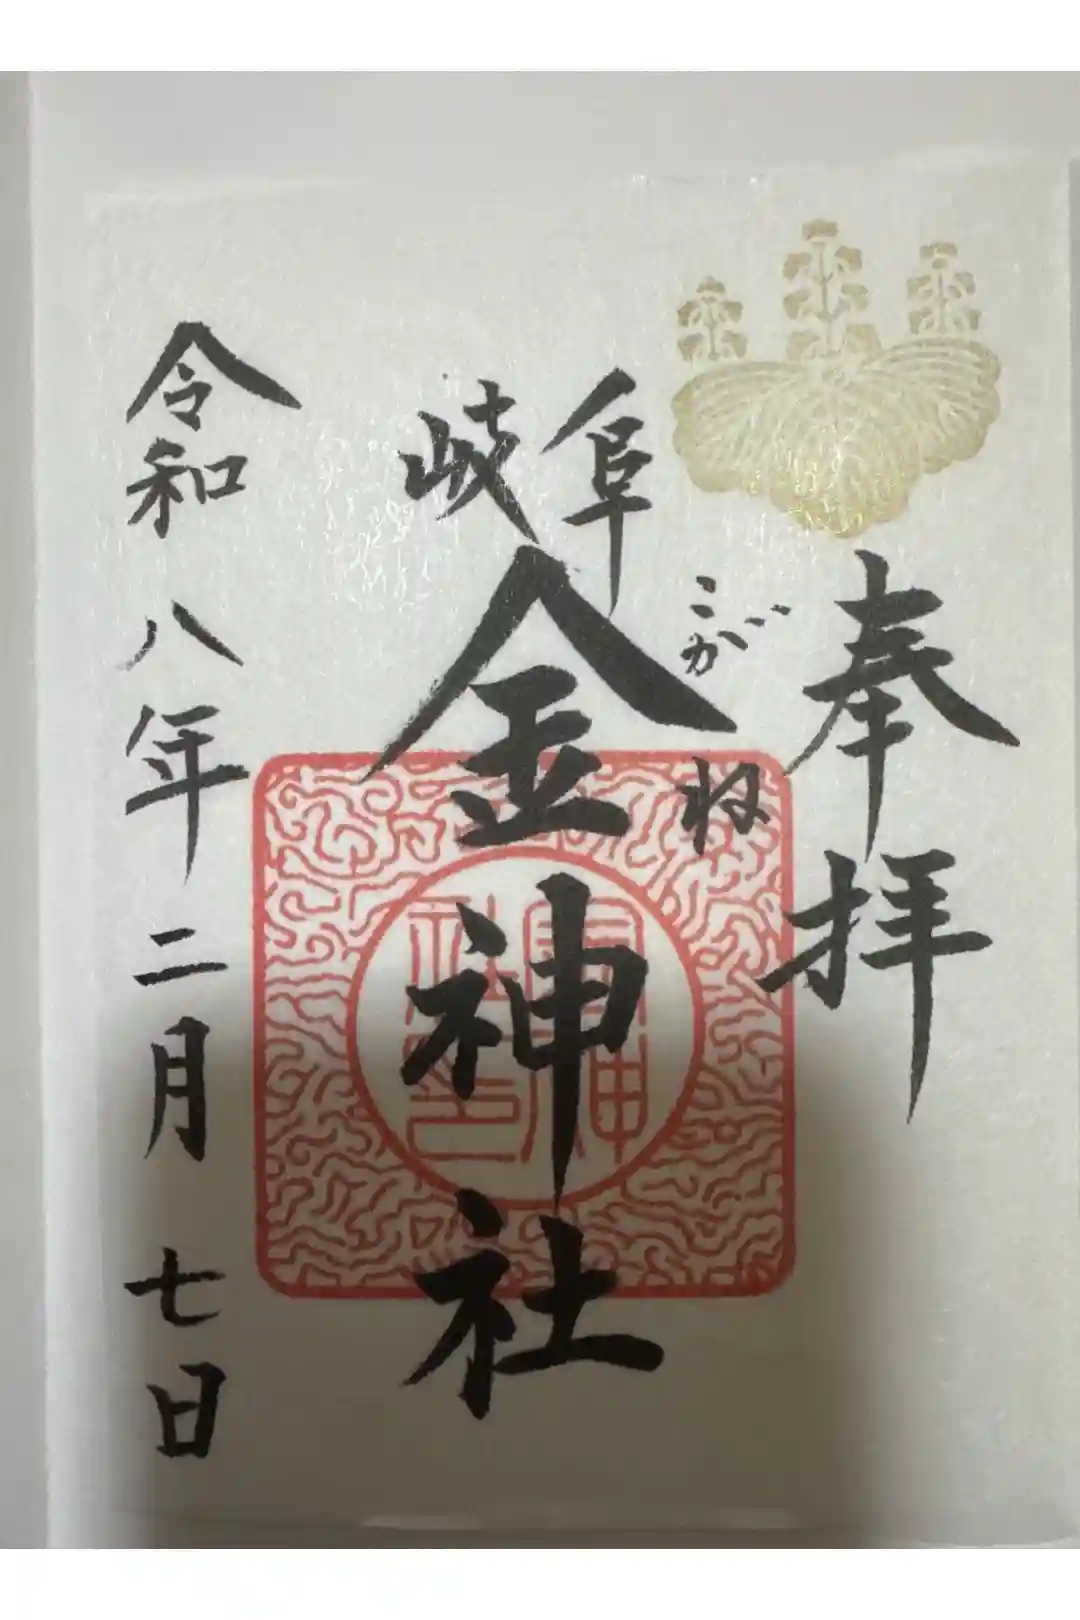 奉拝
こがね
岐阜
金神社
令和八年二月七日